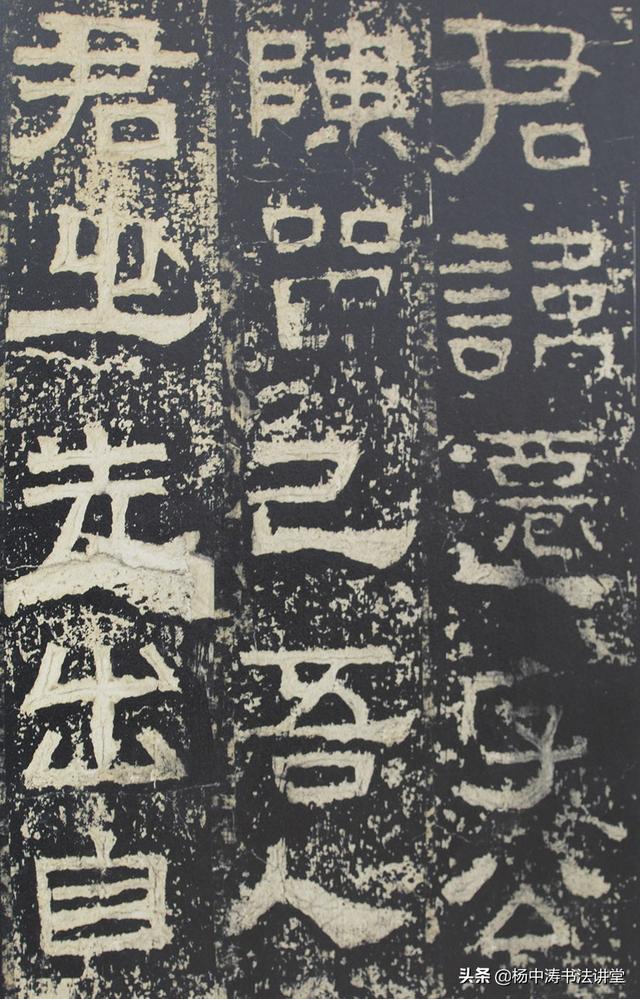 君諱遷字公
陳留己吾人
君之先出自
头条 @杨中涛书法讲堂